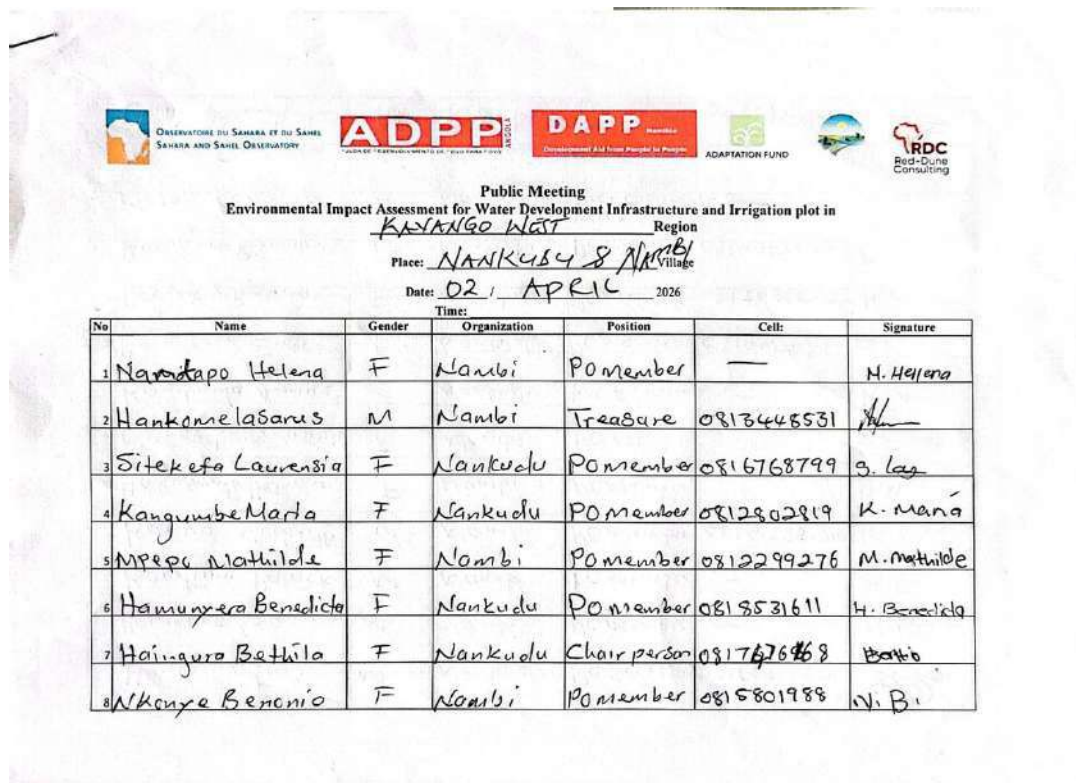 OBSERVATOIRE DU SAHARA ET DU SAHEL
SAHARA AND SAHEL OBSERVATORY
ADPP ANGOLA
DAPP Namibia
Development Aid from People to People
ADAPTATION FUND
RDC
Red-Dune
Consulting
Public Meeting
Environmental Impact Assessment for Water Development Infrastructure and Irrigation plot in
KAVANGO WEST Region
Place: NANKUDU & NAMBI Village
Date: 02 / APRIL 2026
Time:
No Name Gender Organization Position Cell: Signature
1 Helena F Nambi Po member — N. Hellena
2 Hankome lasarus M Nambi Treasure 0813448531
3 Sitekefa Laurensia F Nankudu Po member 0816768799 S. Lau
4 Kangumbe Maria F Nankudu Po member 0812802819 K. Maria
5 Mpepo Mathilde F Nambi Po member 0812299276 M. mathilde
6 Hamunyera Benedicta F Nankudu Po member 0818531611 H. Benedicta
7 Haingura Bethila F Nankudu Chair person
8 Nkonye Benonio F Nambi Po member 0815801988 N. B.